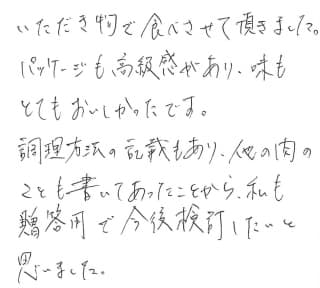 いただき物で食べさせて頂きました。
パッケージも高級感があり、味も
とてもおいしかったです。
調理方法の記載もあり、他の肉の
ことも書いてあったことから、私も
贈答用で今後検討したいと
思いました。